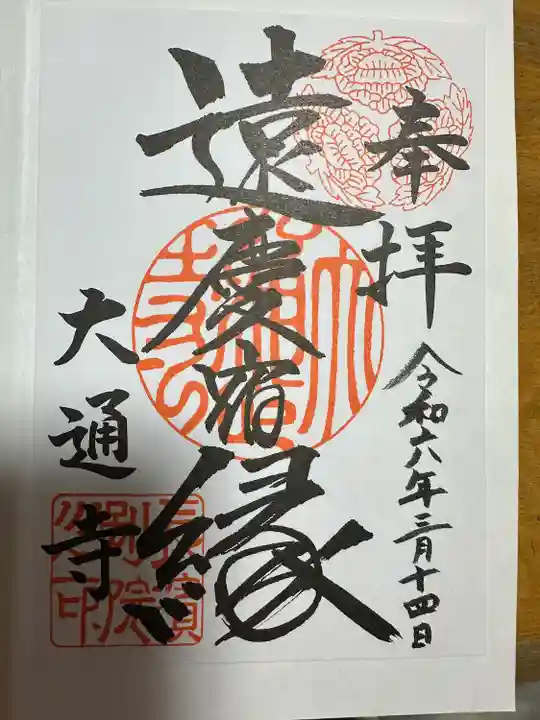 奉拝
令和六年三月十四日
遠慶宿縁
大通寺
長濱別院